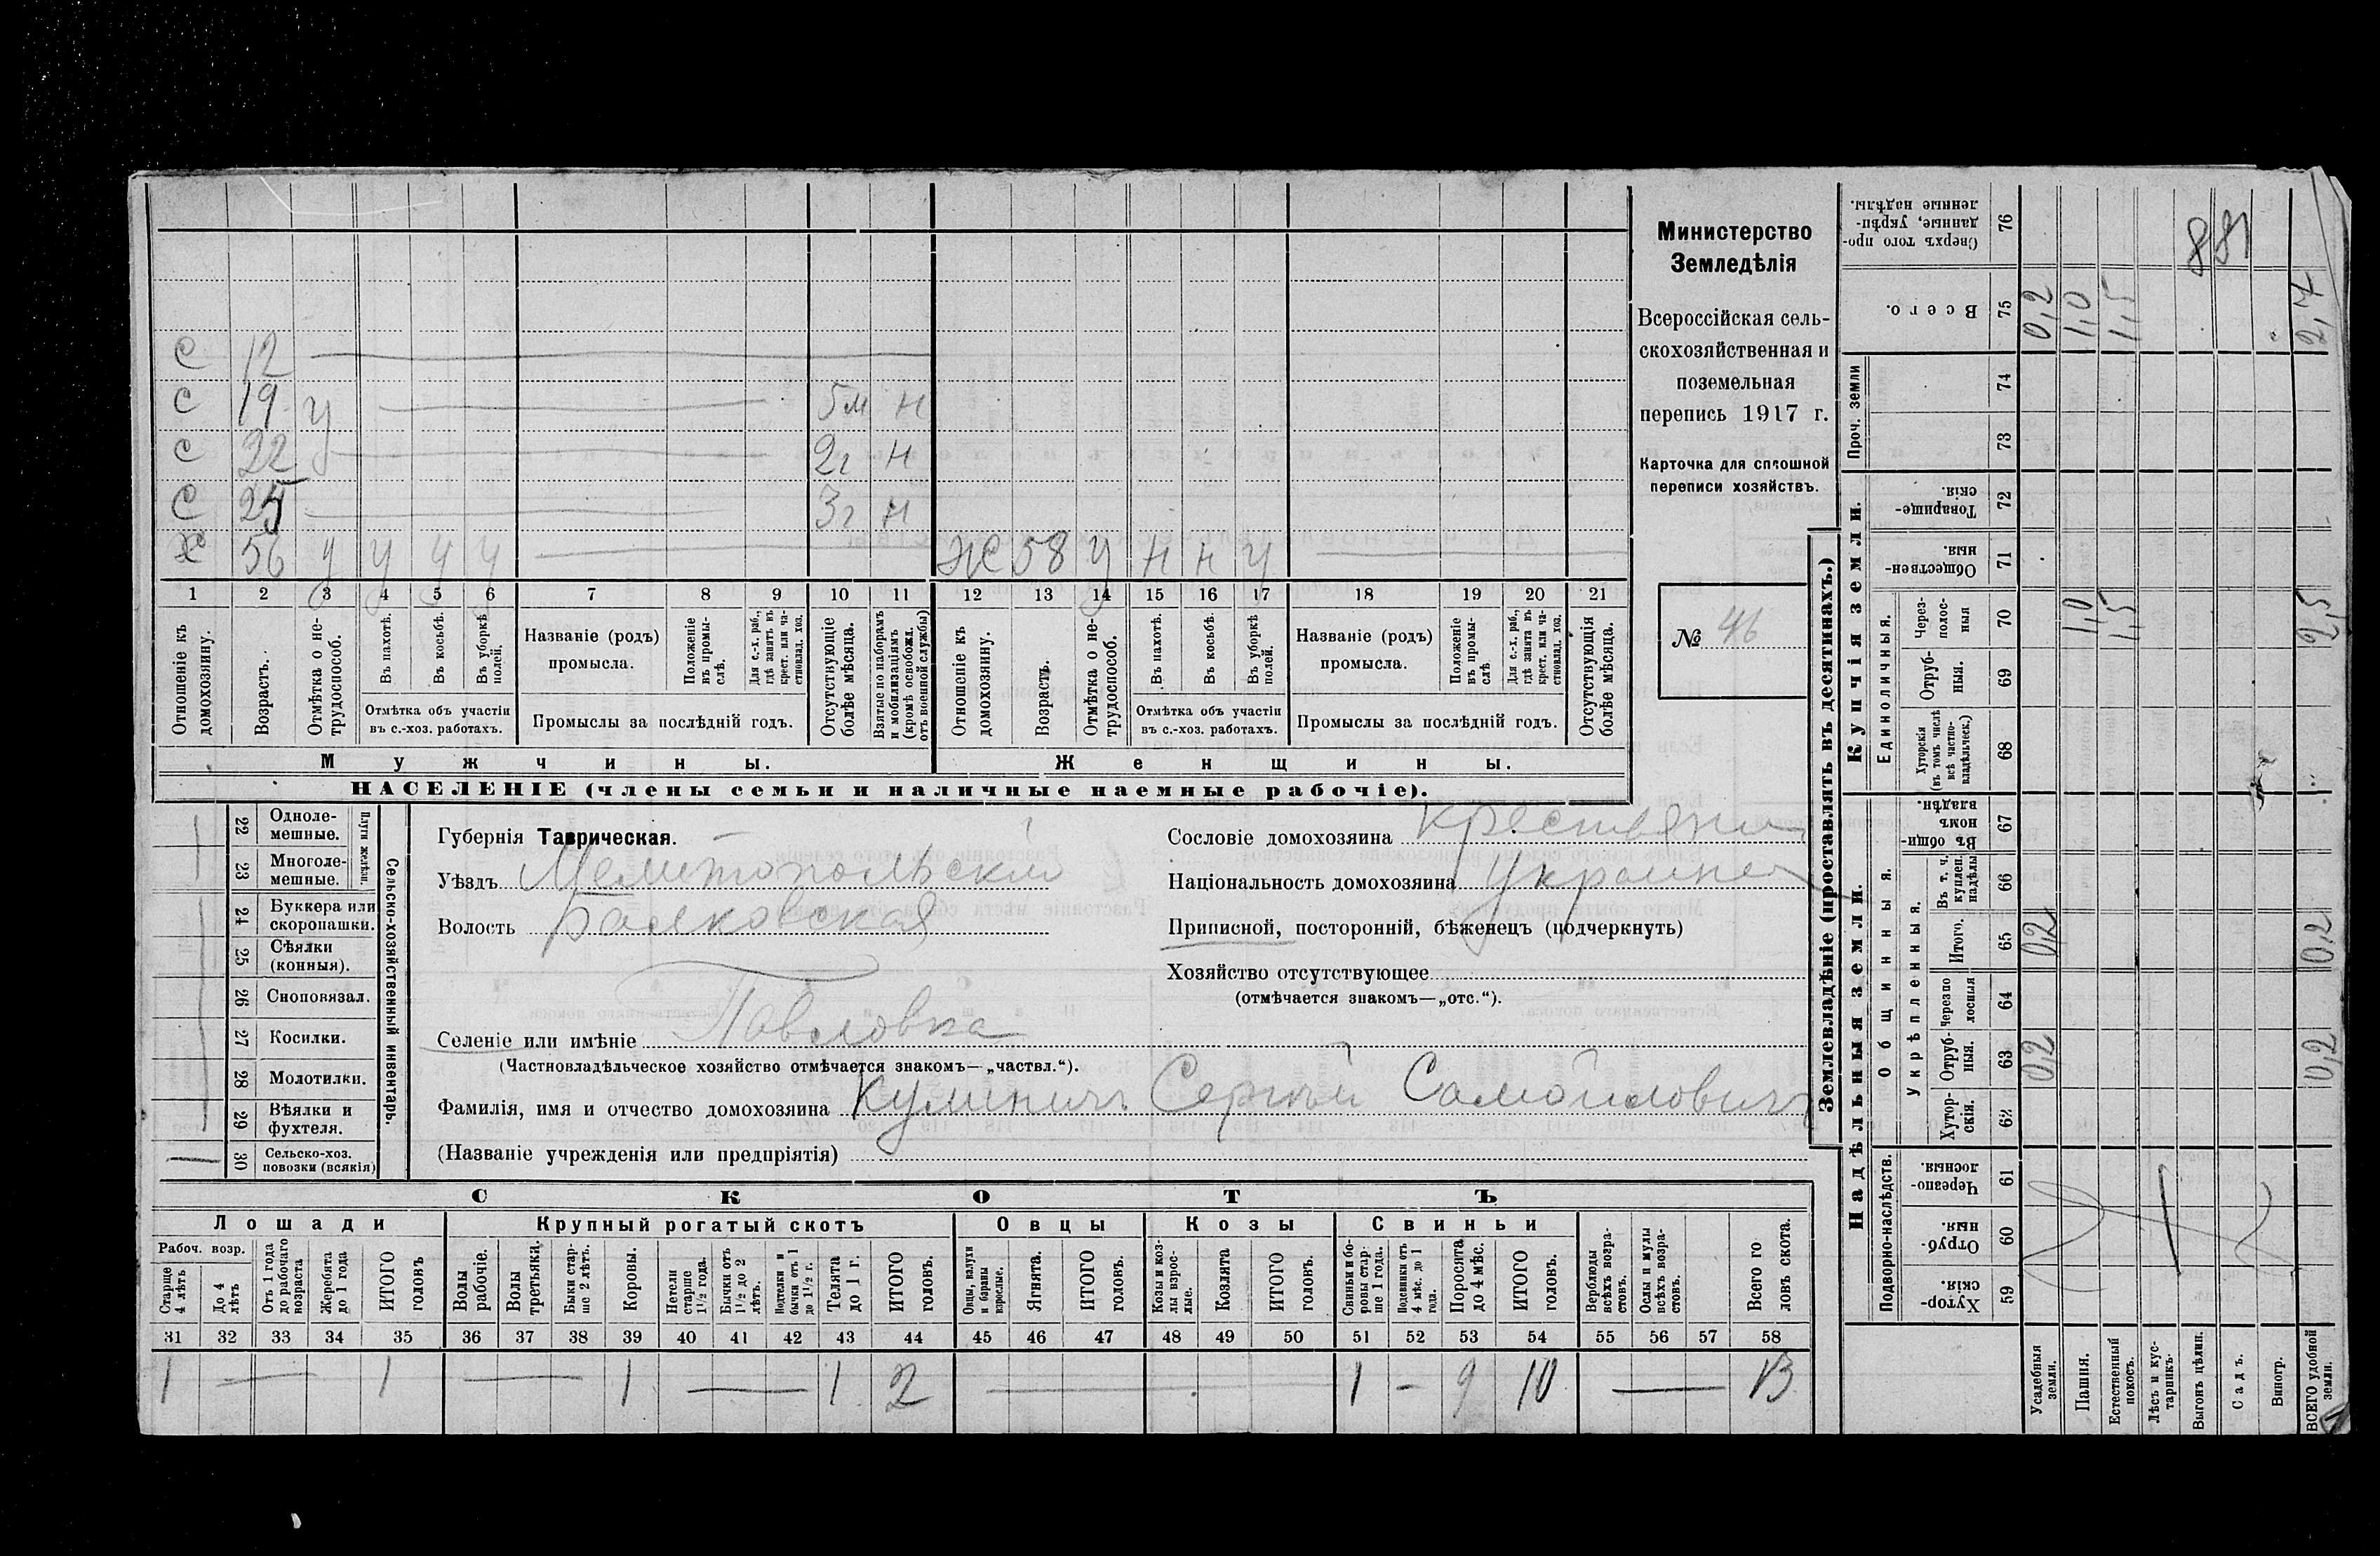 С 12
С 19 у 5м н
С 22 у 2г н
С 25 3г н
Х 56 у у у у Ж 58 у н н у
1 2 3 4 5 6 7 8 9 10 11 12 13 14 15 16 17 18 19 20 21
Отношеніе къ домохозяину.
Возрастъ.
Отмѣтка о не-
трудоспособ.
Въ пахотѣ.
Въ косьбѣ.
Въ уборкѣ
полей.
Отмѣтка объ участіи
въ с.-хоз. работахъ.
Названіе (родъ)
промысла.
Положеніе
въ промы-
слѣ.
Для с.-х. раб.,
гдѣ занятъ въ
крест. или ча-
стновлад. хоз.
Промыслы за послѣдній годъ.
Отсутствующіе
болѣе мѣсяца.
Взятые по наборамъ
и мобилизаціямъ
(кромѣ освобожд.
отъ военной службы)
Отношеніе къ
домохозяину.
Возрастъ.
Отмѣтка о не-
трудоспособ.
Въ пахотѣ.
Въ косьбѣ.
Въ уборкѣ
полей.
Отмѣтка объ участіи
въ с.-хоз. работахъ.
Названіе (родъ)
промысла.
Положеніе
въ промы-
слѣ
Для с.-х. раб.,
гдѣ занята въ
крест. или ча-
стновлад. хоз.
Промыслы за послѣдній годъ.
Отсутствующія
болѣе мѣсяца.
Мужчины.
Женщины.
НАСЕЛЕНІЕ (члены семьи и наличные наемные рабочіе).
Министерство
Земледѣлія
Всероссійская сель-
скохозяйственная и
поземельная
перепись 1917 г.
Карточка для сплошной
переписи хозяйствъ.
№ 46
22 Одноле-
мешные.
23 Многоле-
мешные.
Плуги желѣзн.
24 Буккера или
скоропашки.
25 Сѣялки
(конныя).
26 Сноповязал.
27 Косилки.
28 Молотилки.
29 Вѣялки и
фухтеля.
30 Сельско-хоз.
повозки (всякія)
Сельско-хозяйственный инвентарь.
Губернія Таврическая.
Уѣздъ Мелитопольскій
Волость Балковская
Селеніе или имѣніе Павловка
(Частновладѣльческое хозяйство отмѣчается знакомъ—„частвл.“).
Фамилія, имя и отчество домохозяина Кулиничъ Сергѣй Самойловичъ
(Названіе учрежденія или предпріятія)
Сословіе домохозяина крестьянин
Національность домохозяина украинец
Приписной, посторонній, бѣженецъ (подчеркнуть)
Хозяйство отсутствующее
(отмѣчается знакомъ—„отс.“).
СКОТЪ
Лошади
Крупный рогатый скотъ
Овцы
Козы
Свиньи
Рабоч. возр.
Старше
4 лѣтъ
До 4
лѣтъ
Отъ 1 года
до рабочаго
возраста
Жеребята
до 1 года
ИТОГО
головъ
Волы
рабочіе.
Волы
третьяки.
Быки стар-
ше 2 лѣтъ.
Коровы.
Нетели
старше
1½ года.
Бычки отъ
1½ до 2
лѣтъ.
Подтелки и
бычки отъ 1
до 1½ г.
Телята
до 1 г.
ИТОГО
головъ.
Овцы, валухи
и бараны
взрослые.
Ягнята.
ИТОГО
головъ.
Козы и коз-
лы взрос-
лые.
Козлята
ИТОГО
головъ.
Свиньи и бо-
ровы стар-
ше 1 года.
Подсвинки отъ
4 мѣс. до 1
года.
Поросята
до 4 мѣс.
ИТОГО
головъ.
Верблюды
всѣхъ возра-
стовъ.
Ослы и мулы
всѣхъ возра-
стовъ.
Всего го
ловъ скота.
31 32 33 34 35 36 37 38 39 40 41 42 43 44 45 46 47 48 49 50 51 52 53 54 55 56 57 58
1 — 1 — 1 — 1 2 — 1 – 9 10 — 13
Землевладѣніе (проставлять въ десятинахъ.)
Надѣльныя земли.
Купчія земли.
Проч. земли
Подворно-наслѣдств.
Общинныя.
Укрѣпленныя.
Единоличныя.
Сверхъ того про-
данные, укрѣп-
ленные надѣлы. 76
Всего. 75
74
73
Товарище-
скія. 72
Обществен-
ныя. 71
Через-
полос-
ныя 70
Отруб-
ныя. 69
Хуторскія
(въ томъ числѣ
всѣ частно-
владѣльческ.) 68
Въ общин-
номъ
владѣн. 67
Въ т. ч.
куплен.
надѣлы 66
Итого. 65
Черезпо
лосныя 64
Отруб-
ныя. 63
Хутор-
скія. 62
Черезпо-
лосныя. 61
Отруб-
ныя. 60
Хутор-
скія. 59
Усадебныя
земли.
0,2 0,2 0,2
Пашня.
1,0 1,0
Естественный
покосъ.
1,5 1,5
Лѣсъ и кус-
тарникъ.
Выгонъ цѣлин.
Садъ.
Виногр.
ВСЕГО удобной
земли.
0,2 0,2 2,5 2,7